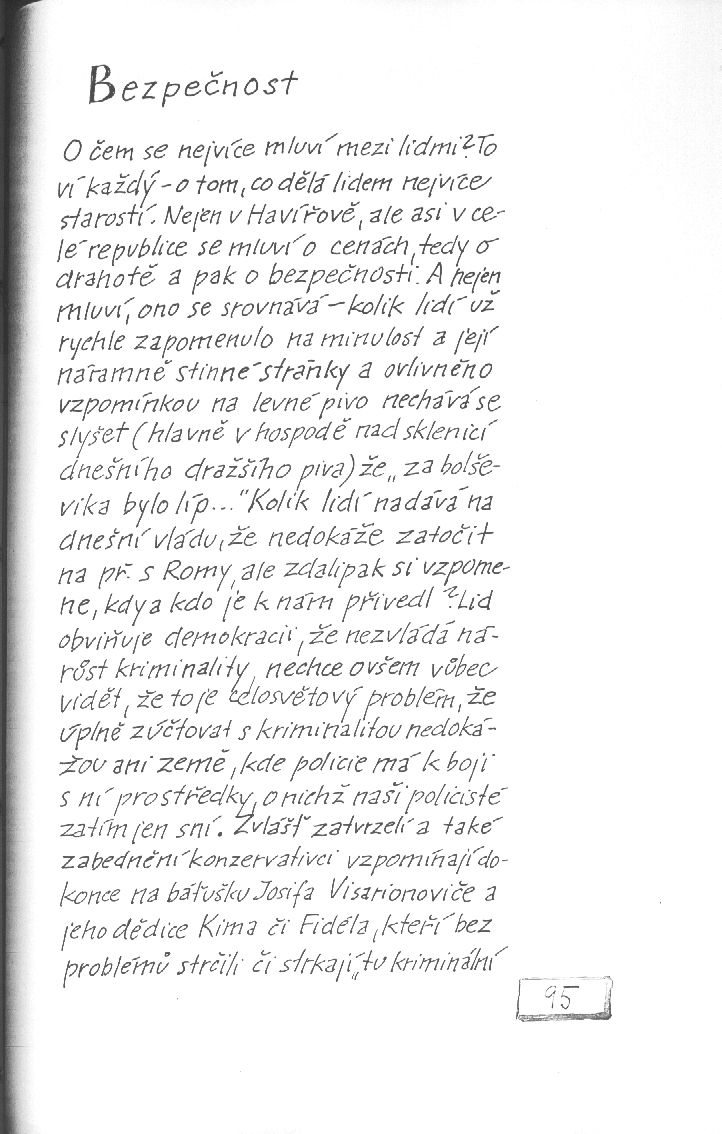 Bezpečnost
O čem se nejvíce mluví mezi lidmi? To
ví každý - o tom, co dělá lidem nejvíce
starostí. Nejen v Havířově, ale asi v ce-
lé republice se mluví o cenách, tedy o
drahotě a pak o bezpečnosti. A nejen
mluví, ono se srovnává - kolik lidí už
rychle zapomenulo na minulost a její
náramně stinné stránky a ovlivněno
vzpomínkou na levné pivo nechává se
slyšet (hlavně v hospodě nad sklenicí
dnešního dražšího piva) že „za bolše-
vika bylo líp..." Kolik lidí nadává na
dnešní vládu, že nedokáže zatočit
na př. s Romy, ale zdalipak si vzpome-
ne, kdy a kdo je k nám přivedl? Lid
obviňuje demokracii, že nezvládá ná-
růst kriminality, nechce ovšem vůbec
vidět, že to je celosvětový problém, že
úplně zúčtovat s kriminalitou nedoká-
žou ani země, kde policie má k boji
s ní prostředky, o nichž naši policisté
zatím jen sní. Zvlášť zatvrzelí a také
zabednění konzervativci vzpomínají do-
konce na báťušku Josifa Visarionoviče a
jeho dědice Kima či Fidéla, kteří bez
problémů strčili či strkají „tu kriminální
95